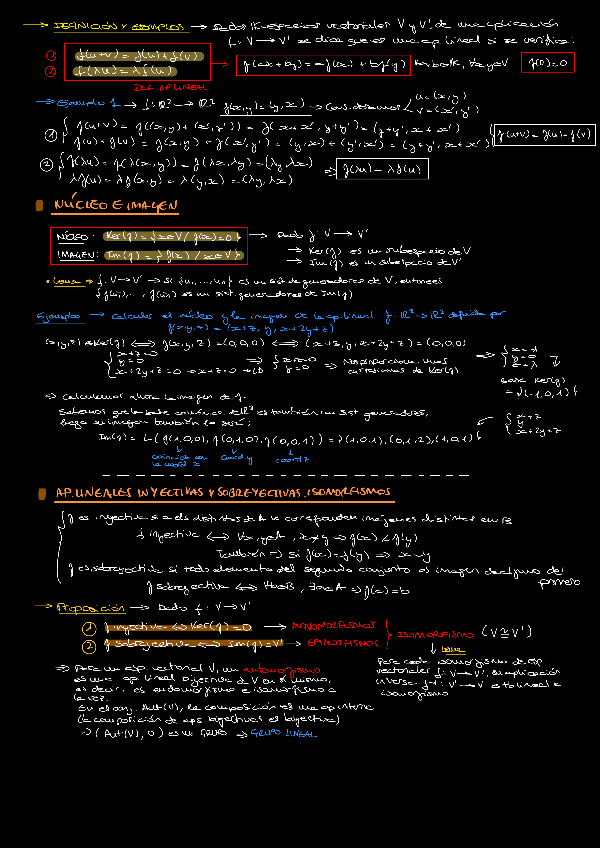 → DEFINICIÓN Y EJEMPLOS → Dados IK-espacios vectoriales V y V', de una aplicación
f: V → V' se dice que es una ap. lineal si se verifica:
① f(u+v) = f(u) + f(v)
② f(λu) = λf(u)
→ f(ax + by) = af(x) + bf(y) ∀a,b∈K, ∀x,y∈V
f(0) = 0
DEF. AP. LINEAL
→ Ejemplo 1 → f: ℝ² → ℝ² f(x,y) = (y,x) → Consideramos { u = (x,y)
v = (x',y')
① { f(u+v) = f((x,y) + (x',y')) = f(x+x', y+y') = (y+y', x+x')
f(u) + f(v) = f(x,y) + f(x',y') = (y,x) + (y',x') = (y+y', x+x')
f(u+v) = f(u) + f(v)
② { f(λu) = f(λ(x,y)) = f(λx, λy) = (λy, λx)
λf(u) = λf(x,y) = λ(y,x) = (λy, λx)
⇒ f(λu) = λf(u)
NÚCLEO E IMAGEN
NÚCLEO: Ker(f) = {x∈V / f(x) = 0}
→ Dado f: V → V'
IMAGEN: Im(f) = {f(x) / x∈V}
→ Ker(f) es un subespacio de V
→ Im(f) es un subespacio de V'
• Lema → f: V → V' → Si {u₁, ..., uₙ} es un sist. de generadores de V, entonces
{f(u₁), ..., f(uₙ)} es un sist. generadores de Im(f)
Ejemplo → Calcular el núcleo y la imagen de la ap. lineal f: ℝ³ → ℝ³ definida por
f(x,y,z) = (x+z, y, x+2y+z)
(x,y,z) ∈ Ker(f) ⟺ f(x,y,z) = (0,0,0) ⟺ (x+z, y, x+2y+z) = (0,0,0)
{ x+z=0
y=0
x+2y+z=0
⇒ { x+z=0
y=0
⇒ Nos proporciona unas
cartesianas de Ker(f)
Base Ker(f)
= {(-1,0,1)}
⇒ Calculamos ahora la imagen de f.
Sabemos que la base canónica de ℝ³ es también un sist. generadores,
luego su imagen también lo será:
{ x+z
y
x+2y+z
Im(f) = L(f(1,0,0), f(0,1,0), f(0,0,1)) = {(1,0,1), (0,1,2), (1,0,1)}
coord y
coord z
AP. LINEALES INYECTIVAS Y SOBREYECTIVAS. ISOMORFISMOS
f es inyectiva si a els distintos de A le corresponden imágenes distintas en B
f inyectiva ⟺ ∀x,y∈A, x≠y ⇒ f(x) ≠ f(y)
También ⇒ si f(x) = f(y) ⇒ x = y
f es sobreyectiva si todo elemento del segundo conjunto es imagen de alguno del
primero
f sobreyectiva ⟺ ∀b∈B, ∃a∈A ⇒ f(a) = b
→ Proposición → Dado f: V → V'
① f inyectiva ⟺ Ker(f) = 0 → MONOMORFISMOS
② f sobreyectiva ⟺ Im(f) = V' → EPIMORFISMOS
ISOMORFISMO (V ≅ V')
Lema
⇒ Para un esp. vectorial V, un automorfismo
es una ap. lineal biyectiva de V en sí mismo,
es decir, es endomorfismo e isomorfismo a
la vez.
En el conj. Aut(V), la composición es una op. interna
(la composición de aps biyectivas es biyectiva)
⇒ (Aut(V), o) es un GRUPO ⇒ GRUPO LINEAL
Para cada isomorfismo de esp.
vectoriales f: V → V', su aplicación
inversa f⁻¹: V' → V es tb lineal e
isomorfismo